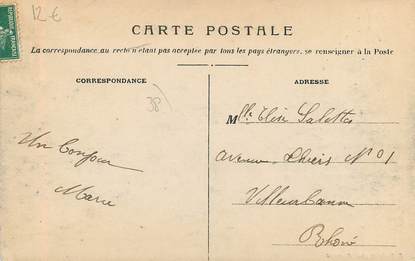 12 €
CARTE POSTALE
La correspondance au recto n'étant pas acceptée par tous les pays étrangers, se renseigner à la Poste
CORRESPONDANCE
ADRESSE
38
Mlle Elise
avenue N° 01
Un bonjour
Marie
Villeurbanne
Rhône